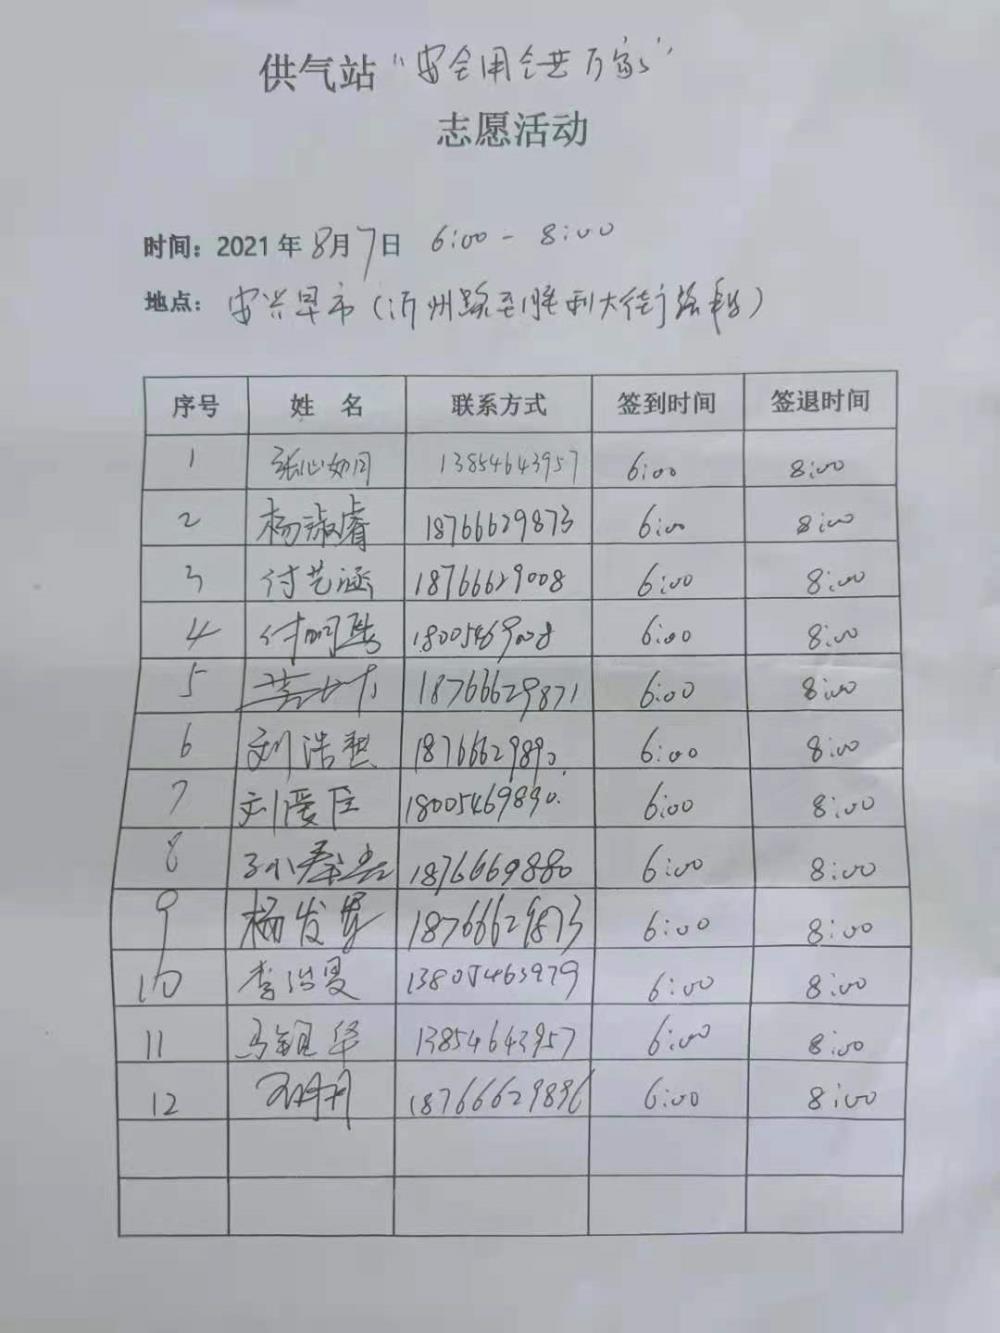 供气站“安全用全进万家”
志愿活动
时间：2021年8月7日 6:00-8:00
地点：安兴早市（沂州路至胜利大街路段）
序号 姓 名 联系方式 签到时间 签退时间
1 张心如 13854643957 6:00 8:00
2 杨淑睿 18766629873 6:00 8:00
3 付艺涵 18766629008 6:00 8:00
4 付明 18005469008 6:00 8:00
5 18766629871 6:00 8:00
6 刘浩 18766629890. 6:00 8:00
7 刘爱臣 18005469890. 6:00 8:00
8 1876669880 6:00 8:00
9 杨发 18766629873 6:00 8:00
10 李浩 13805463979 6:00 8:00
11 马 华 13854643957 6:00 8:00
12 18766629896 6:00 8:00